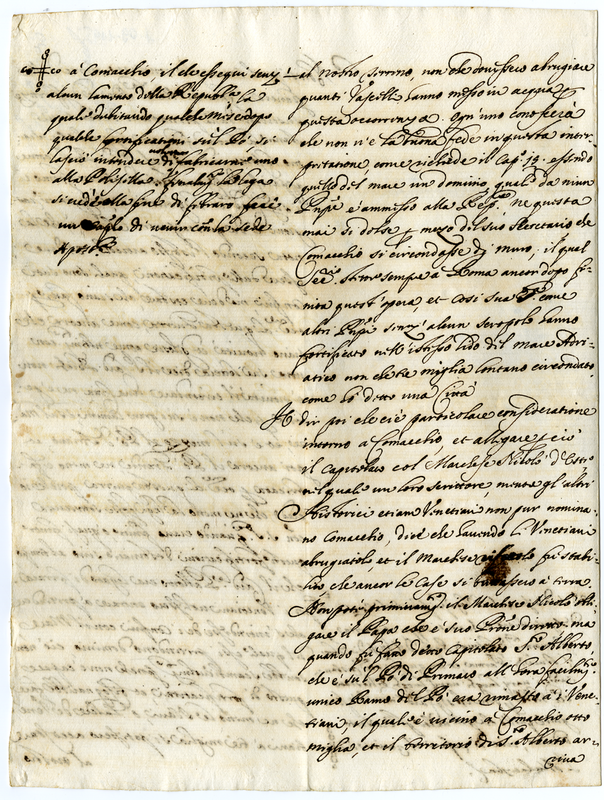 co à Comacchio, il che esseguì senz'
alcun lamento della Republica la
quale dubitando qualche mese dopo
qualche fortificatione sul Pò si
lasciò intendere di fabricarne uno
alla Polisella
si vedè alla fine di
un di venir con la sede
Apost.ca
al nostro, non che dovissero abrugiare
quanti Vascelli hanno messo in acqua p
questa occorrenza. Ogn'uno conoscerà
che non v'è la buona fede in questa inter-
pretatione come richiede il Cap. 19. essendo
quello del mare un dominio, quale da niun
Prpe è ammesso alla Rep.ca Ne questa
mai si dolse p mezo del suo Secretario che
Comacchio si circondasse di muro, il qual
Sec.rio stette sempre à Roma ancor dopo fi-
nita quest'opera, et così sua S.tà come
altri Prpi senz'alcun scropolo hanno
fortificato nell'istesso lido del mare Adri-
atico non che tre miglia lontano circondato,
come hò detto una Città
A dir poi che ci è particolare consideratione
intorno a Comacchio et allegare p ciò
il Capitolato col Marchese Nicolò d'Este
nel quale un loro scrittore, mentre gl'altri
Historici etiam Venetiani non pur nomina-
no Comacchio, dice che havendo li Venetiani
abrugiatolo, et il Marchese fù stabi-
lito, che ancor le Case si buttassero à terra.
Non potè primieram.te il Marchese Nicolò obli-
gare il Papa che è suo Prone diretto. ma
quando fù fatto detto Capitolato S.to Alberto,
che è sul Pò di Primaro all'hora facilm.te
unico Ramo del Pò era rimasto à i Vene-
tiani, il quale è vicino à Comacchio otto
miglia, et il territorio di S.to Alberto ar-
riva